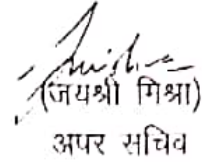 (जयश्री मिश्रा)
अपर सचिव